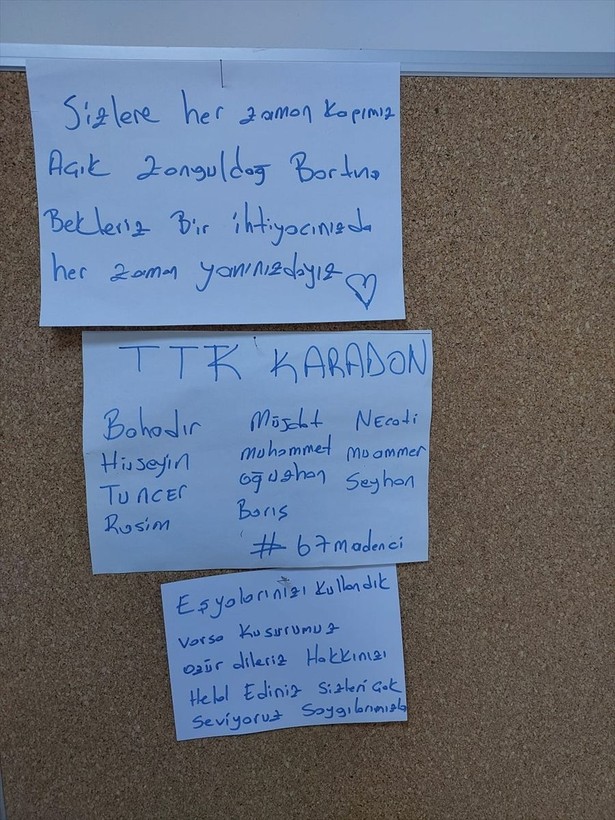 Sizlere her zaman kapımız
Açık Zonguldağ Bartına
Bekleriz Bir ihtiyacınızda
her zaman yanınızdayız
TTK KARADON
Bahadır Müjdat Necati
Hüseyin muhammet muammer
TUNCER oğuzhan Seyhan
Rasim Barış
# 67madenci
Eşyalarınızı kullandık
varsa kusurumuz
özür dileriz Hakkınızı
Helal Ediniz Sizleri Çok
Seviyoruz Saygılarımızla